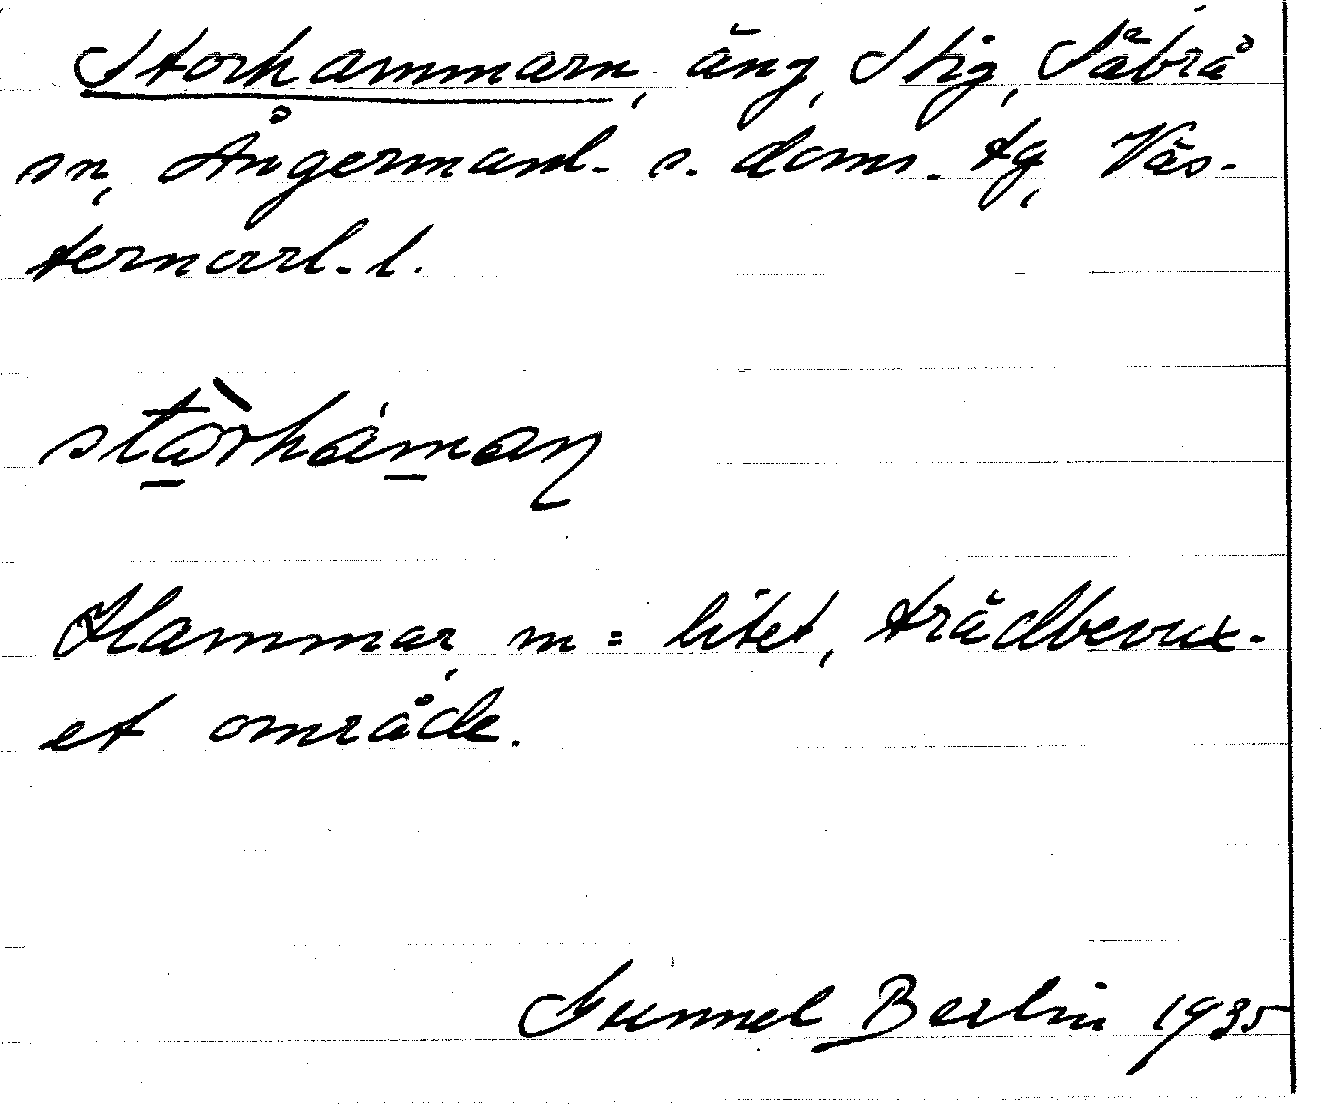 Storhammarn, äng, Stig, Säbrå
sn, Ångermanl. s. doms. tg, Väs-
ternorrl. l.
stòrháman
Hammar, m = litet, trädbevux-
et område.
Gunnel Berlin 1935